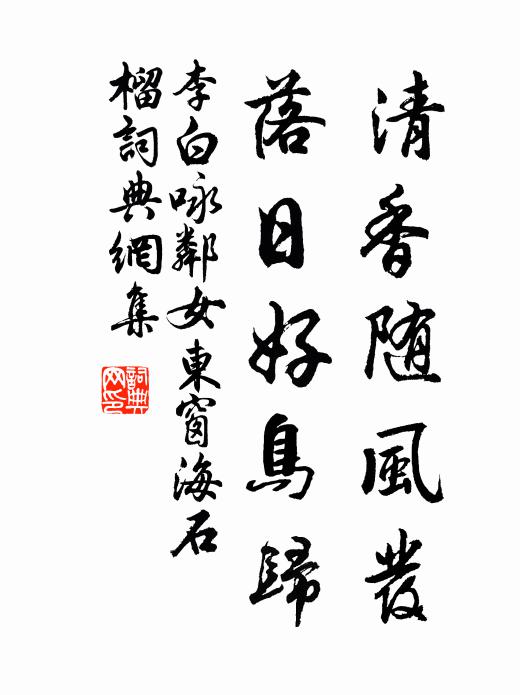 清香随風發
落日好鳥歸
李白咏鄰女東窗海石
榴詞典網集
詞典
网印